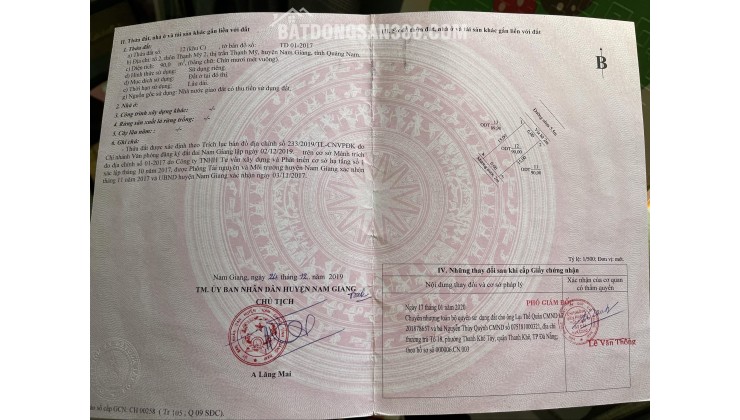 BATDONGSAN366.COM
II. Thửa đất, nhà ở và tài sản khác gắn liền với đất
1. Thửa đất:
a) Thửa đất số: 12 (Khu C) , tờ bản đồ số: TĐ 01-2017
b) Địa chỉ: tổ 2, thôn Thạnh Mỹ 2, thị trấn Thạnh Mỹ, huyện Nam Giang, tỉnh Quảng Nam.
c) Diện tích: 90,0 m², (bằng chữ: Chín mươi mét vuông).
d) Hình thức sử dụng: Sử dụng riêng.
đ) Mục đích sử dụng: Đất ở tại đô thị
e) Thời hạn sử dụng: Lâu dài.
g) Nguồn gốc sử dụng: Nhà nước giao đất có thu tiền sử dụng đất.
2. Nhà ở:
3. Công trình xây dựng khác:
4. Rừng sản xuất là rừng trồng: -/-
5. Cây lâu năm: -/-
6. Ghi chú:
Thửa đất được xác định theo Trích lục bản đồ địa chính số 233/2019/TL-CNVPĐK do
Chi nhánh Văn phòng đăng ký đất đai Nam Giang lập ngày 02/12/2019, trên cơ sở Mảnh trích
đo địa chính số 01-2017 do Công ty TNHH Tư vấn xây dựng và Phát triển cơ sở hạ tầng số 1
xác lập tháng 10 năm 2017, được Phòng Tài nguyên và Môi trường huyện Nam Giang xác nhận
tháng 11 năm 2017 và UBND huyện Nam Giang xác nhận ngày 03/11/2017.
Nam Giang, ngày tháng 12 năm 2019
TM. ỦY BAN NHÂN DÂN HUYỆN NAM GIANG
CHỦ TỊCH
A Lăng Mai
số cấp GCN: CH 00258 ( Tr 105 ; Q 09 SĐC).
III. Sơ đồ thửa đất, nhà ở và tài sản khác gắn liền với đất
B
Đường
Vỉa hè
ODT 13 90,00
6.00
15.00
ODT 12 90,00
ODT 11 90,00
Tỷ lệ: 1/500; Đơn vị: mét.
IV. Những thay đổi sau khi cấp Giấy chứng nhận
Nội dung thay đổi và cơ sở pháp lý
Xác nhận của cơ quan
có thẩm quyền
Ngày 17 tháng 01 năm 2020
Chuyển nhượng toàn bộ quyền sử dụng đất cho ông Lại Thế Quân CMND số
201878657 và bà Nguyễn Thúy Quỳnh CMND số địa chỉ
thường trú Tổ 18, phường Thanh Khê Tây, quận Thanh Khê, TP Đà Nẵng;
theo hồ sơ số 000006.CN.003
PHÓ GIÁM ĐỐC
Lê Văn Thông